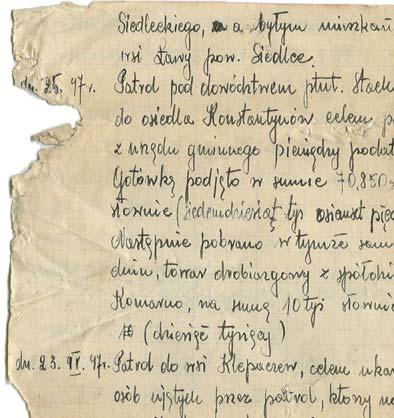 Siedleckiego, a byłym mieszkań
wsi Stawy pow. Siedlce.
dn. 25. 47r. Patrol pod dowództwem plut. Stack
do osiedla Konstantynów celem p
z urzędu gminnego pieniędzy podat
Gotówkę podjęto w sumie 70,850
słownie (siedemdziesiąt tyś osiemset pięć
Następnie pobrano w tymże sam
dniu, towar drobiazgowy z spółdzi
Komarno, na sumę 10 tyś słowni
(dziesięć tysięcy)
dn. 23. IV. 47r. Patrol do wsi Klepaczew, celem ukar
osób ujętych przez patrol, który na